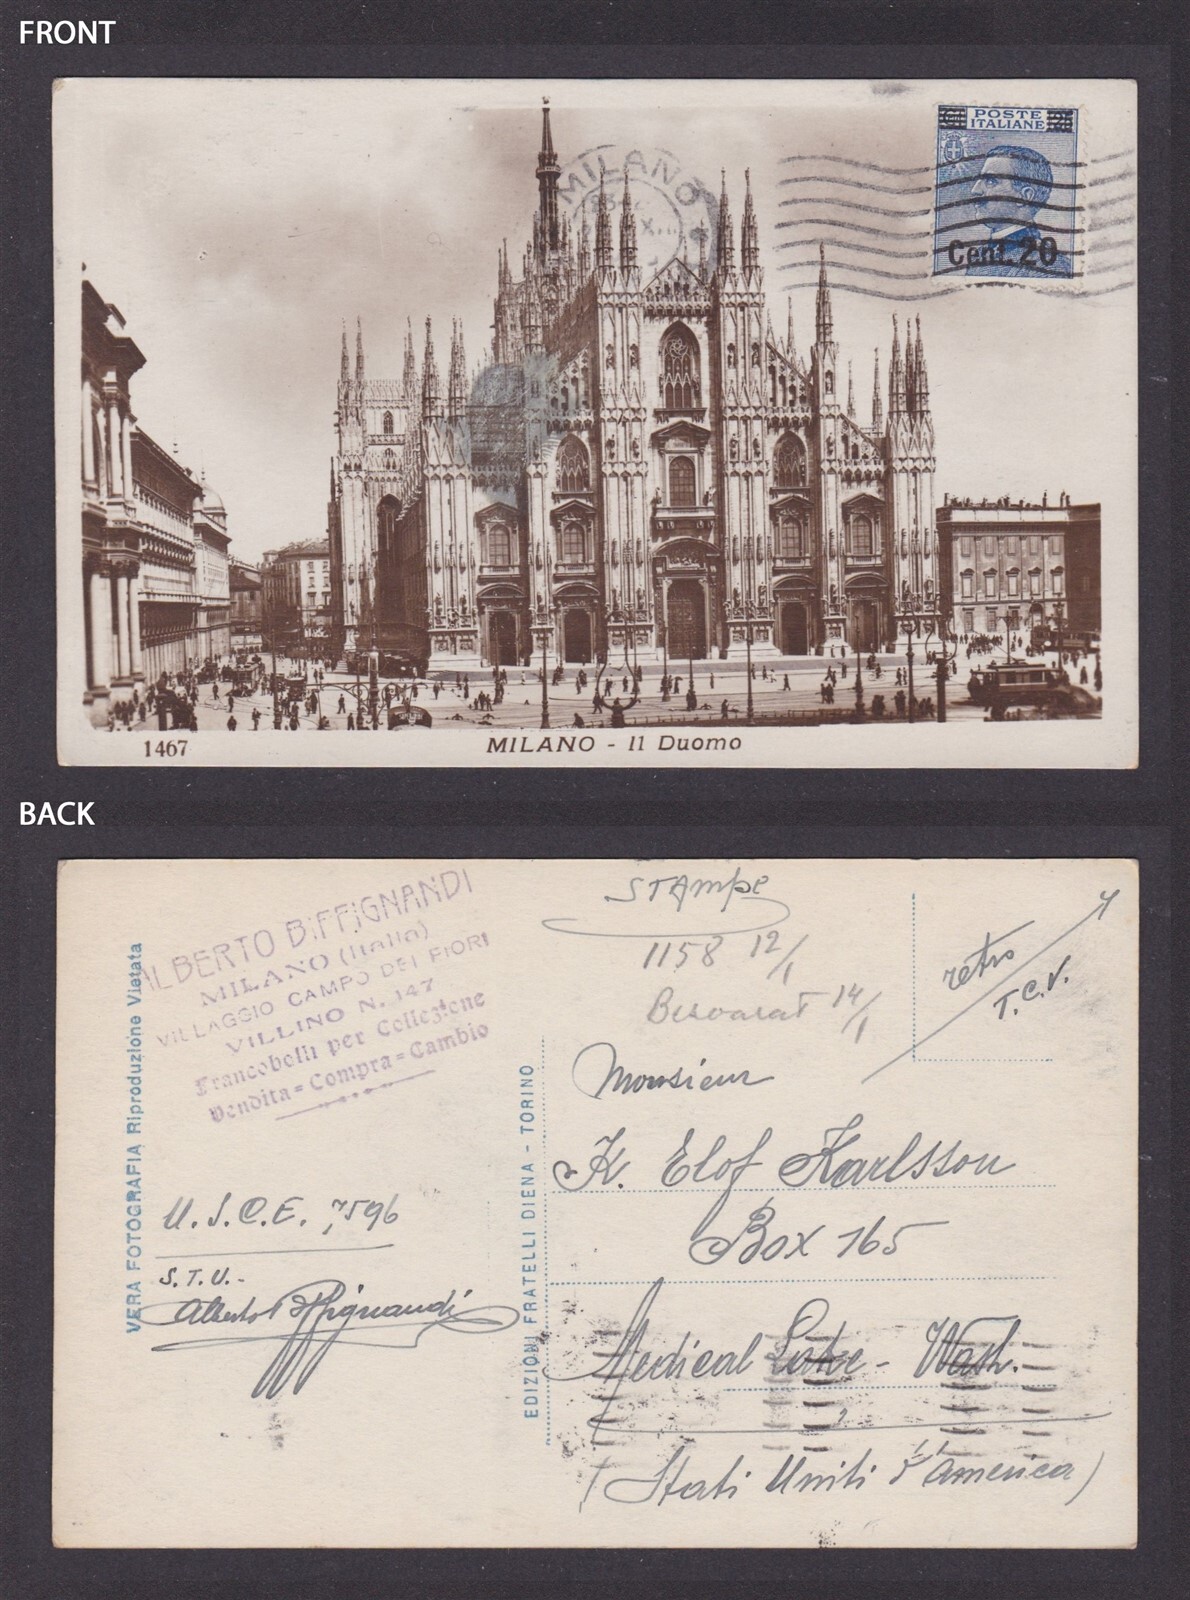 FRONT
POSTE
ITALIANE
25
Cent. 20
MILANO
1467
MILANO - Il Duomo
BACK
ALBERTO BIFFIGNANDI
MILANO (Italia)
VILLAGGIO CAMPO DEI FIORI
VILLINO N. 147
Francobolli per Collezione
Vendita=Compra=Cambio
VERA FOTOGRAFIA Riproduzione Vietata
EDIZIONI FRATELLI DIENA - TORINO
U.S.C.E. 7596
S.T.U.-
Alberto Biffignandi
STAMPE
1158 12/1
Besvarat 14/1
retro
T.C.V.
Monsieur
K. Elof Karlsson
Box 165
Medical Lake - Wash.
(Stati Uniti d'America)